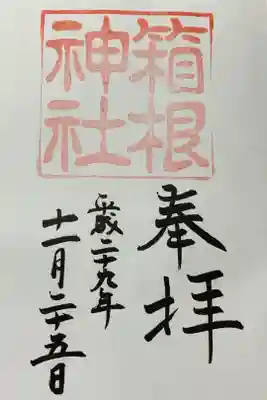 箱根
神社
奉拝
平成二十九年
十一月二十五日